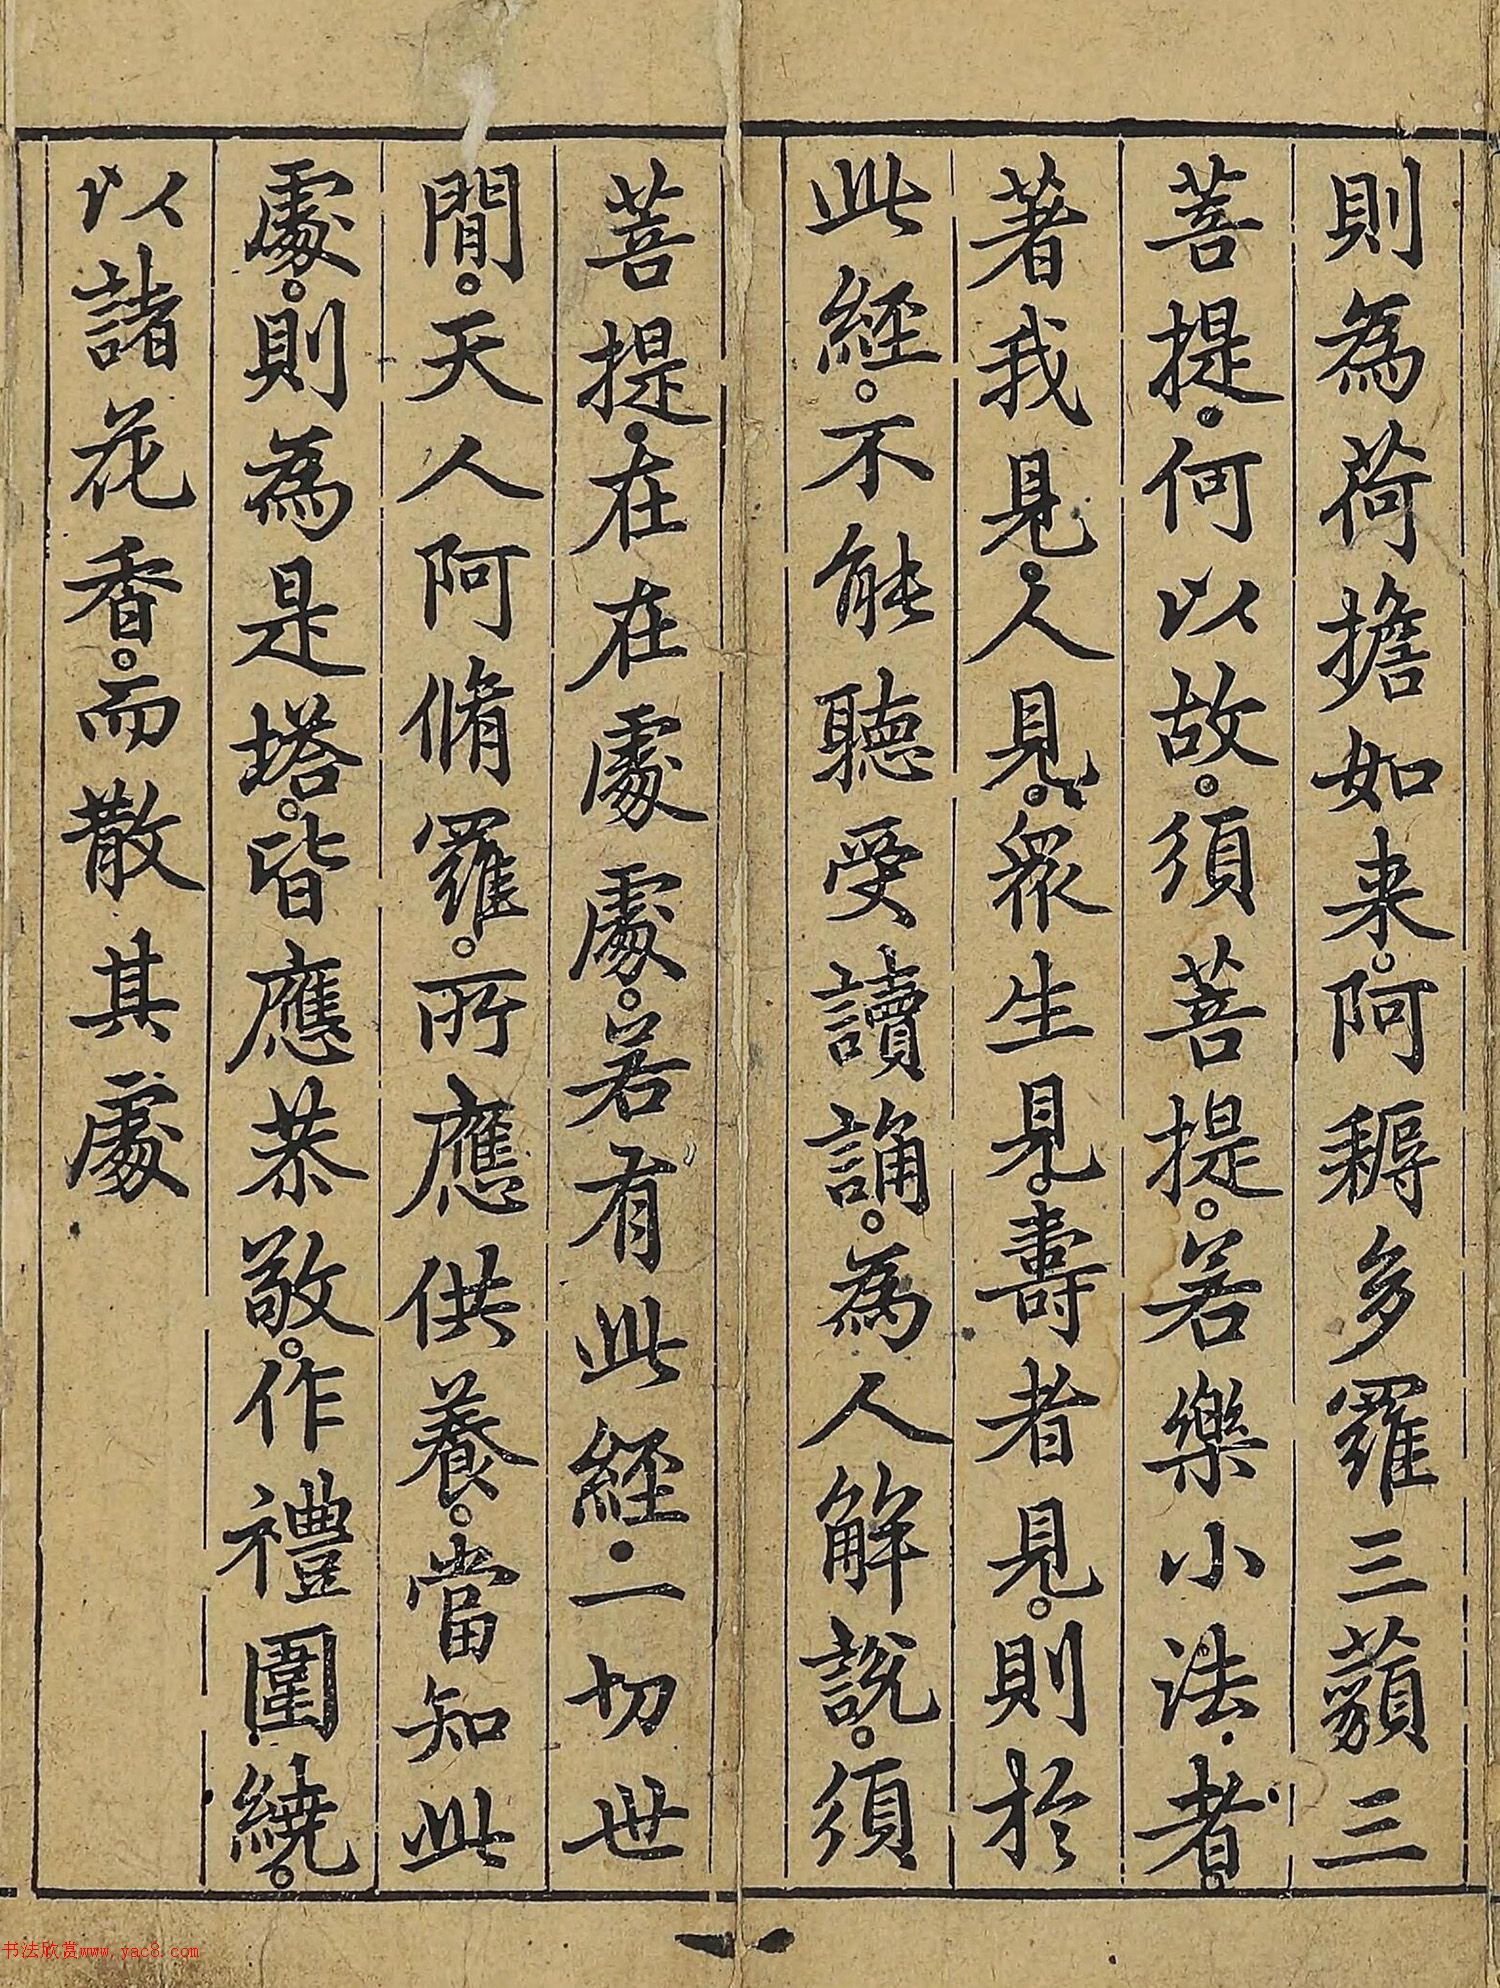 則為荷擔如来。阿耨多羅三藐三
菩提。何以故。須菩提。若樂小法者。
著我見。人見。眾生見。壽者見。則於
此經。不能聽受讀誦。為人解說。須
菩提。在在處處。若有此經。一切世
間。天人阿脩羅。所應供養。當知此
處。則為是塔。皆應恭敬。作禮圍繞。
以諸花香。而散其處
书法欣赏www.yac8.com